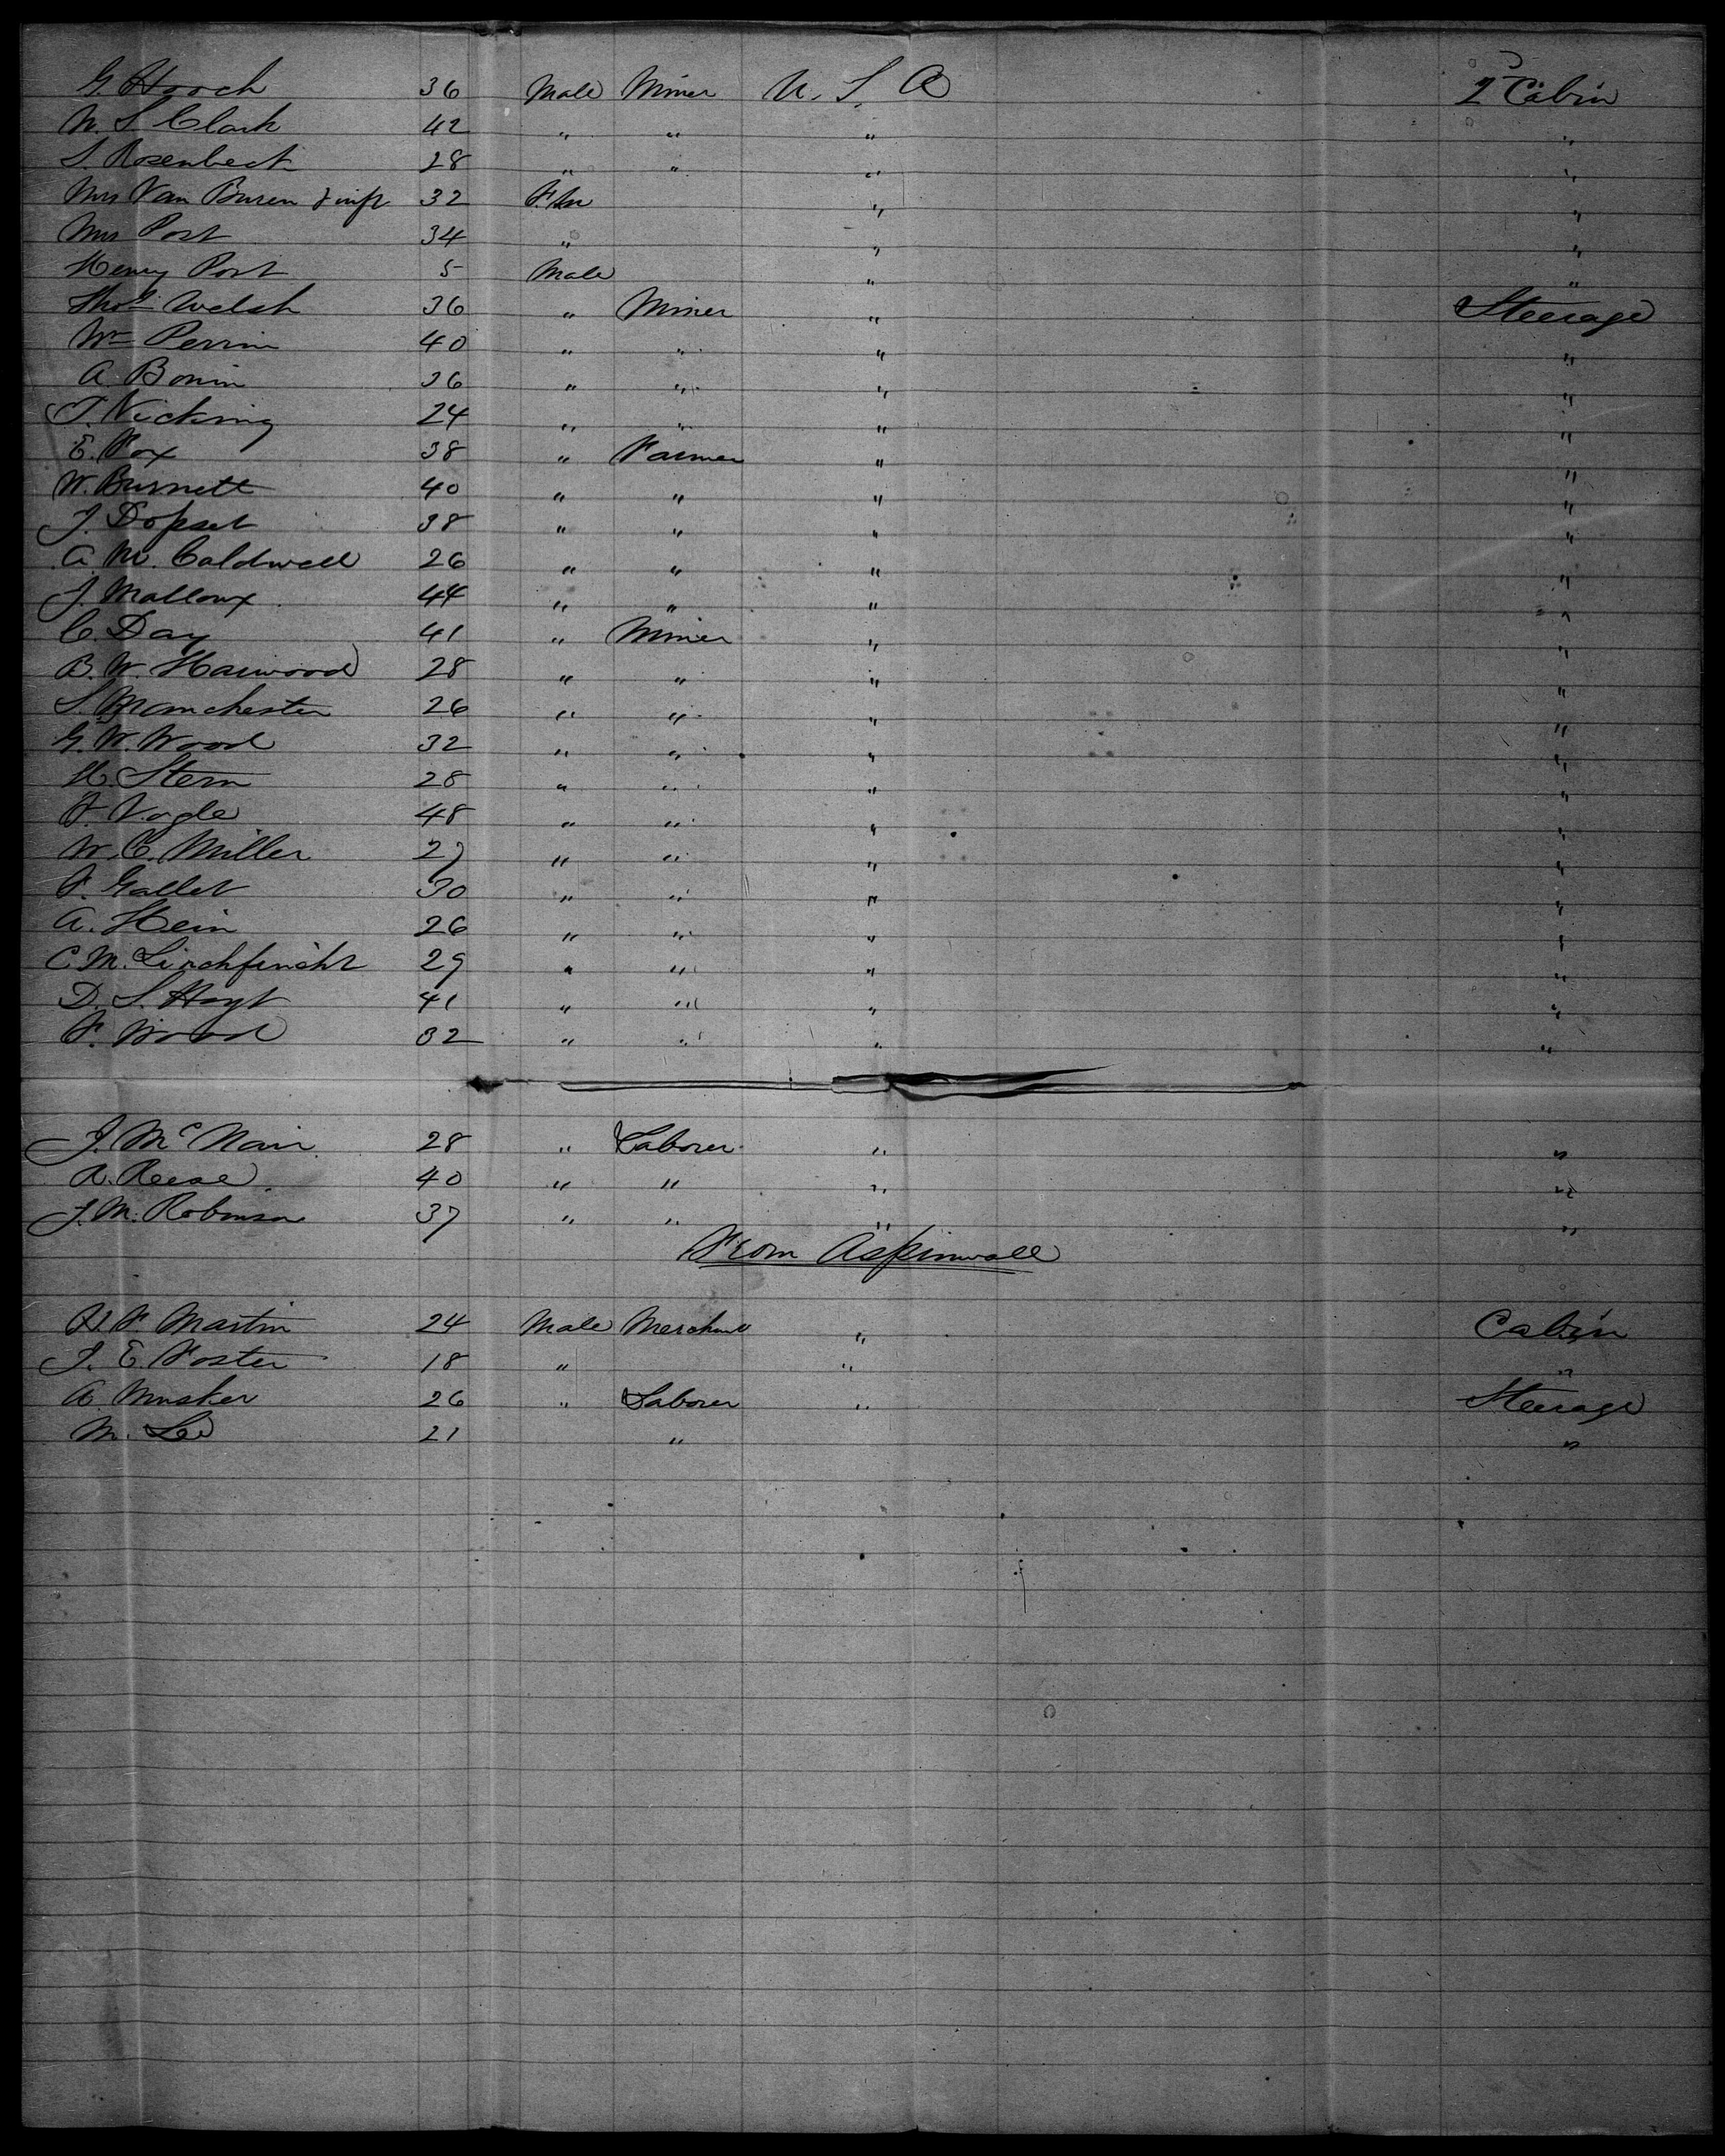 G. Hooch 36 Male Miner U. S. A 2 Cabin
N. S. Clark 42 " " " "
S. Rosenbect 28 " " " "
Mrs Van Buren & inft 32 Fem " "
Mrs Post 34 " " "
Henry Post 5 Male " "
Thos Welsh 36 " Miner " Steerage
Wm Perrin 40 " " " "
A. Bonin 36 " " " "
T. Nicking 24 " " " "
E. Fox 38 " Farmer " "
W. Burnett 40 " " " "
J. Dopset 38 " " " "
A. M. Caldwell 26 " " " "
J. Malloux 44 " " " "
C. Day 41 " Miner " "
B. W. Harwood 28 " " " "
S. Manchester 26 " " " "
G. W. Wood 32 " " " "
H. Stern 28 " " " "
F. Vogle 48 " " " "
W. C. Miller 27 " " " "
F. Gallet 30 " " " "
A. Hein 26 " " " "
C. M. 29 " " " "
D. S. Hoyt 41 " " " "
F. Wood 32 " " " "
J. McNair 28 " Laborer " "
R. Reese 40 " " " "
J. M. Robinson 37 " " " "
From Aspinwall
F. Martin 24 Male Merchant " Cabin
J. E. Foster 18 " " "
A. Musker 26 " Laborer " Steerage
M. Le 21 " "